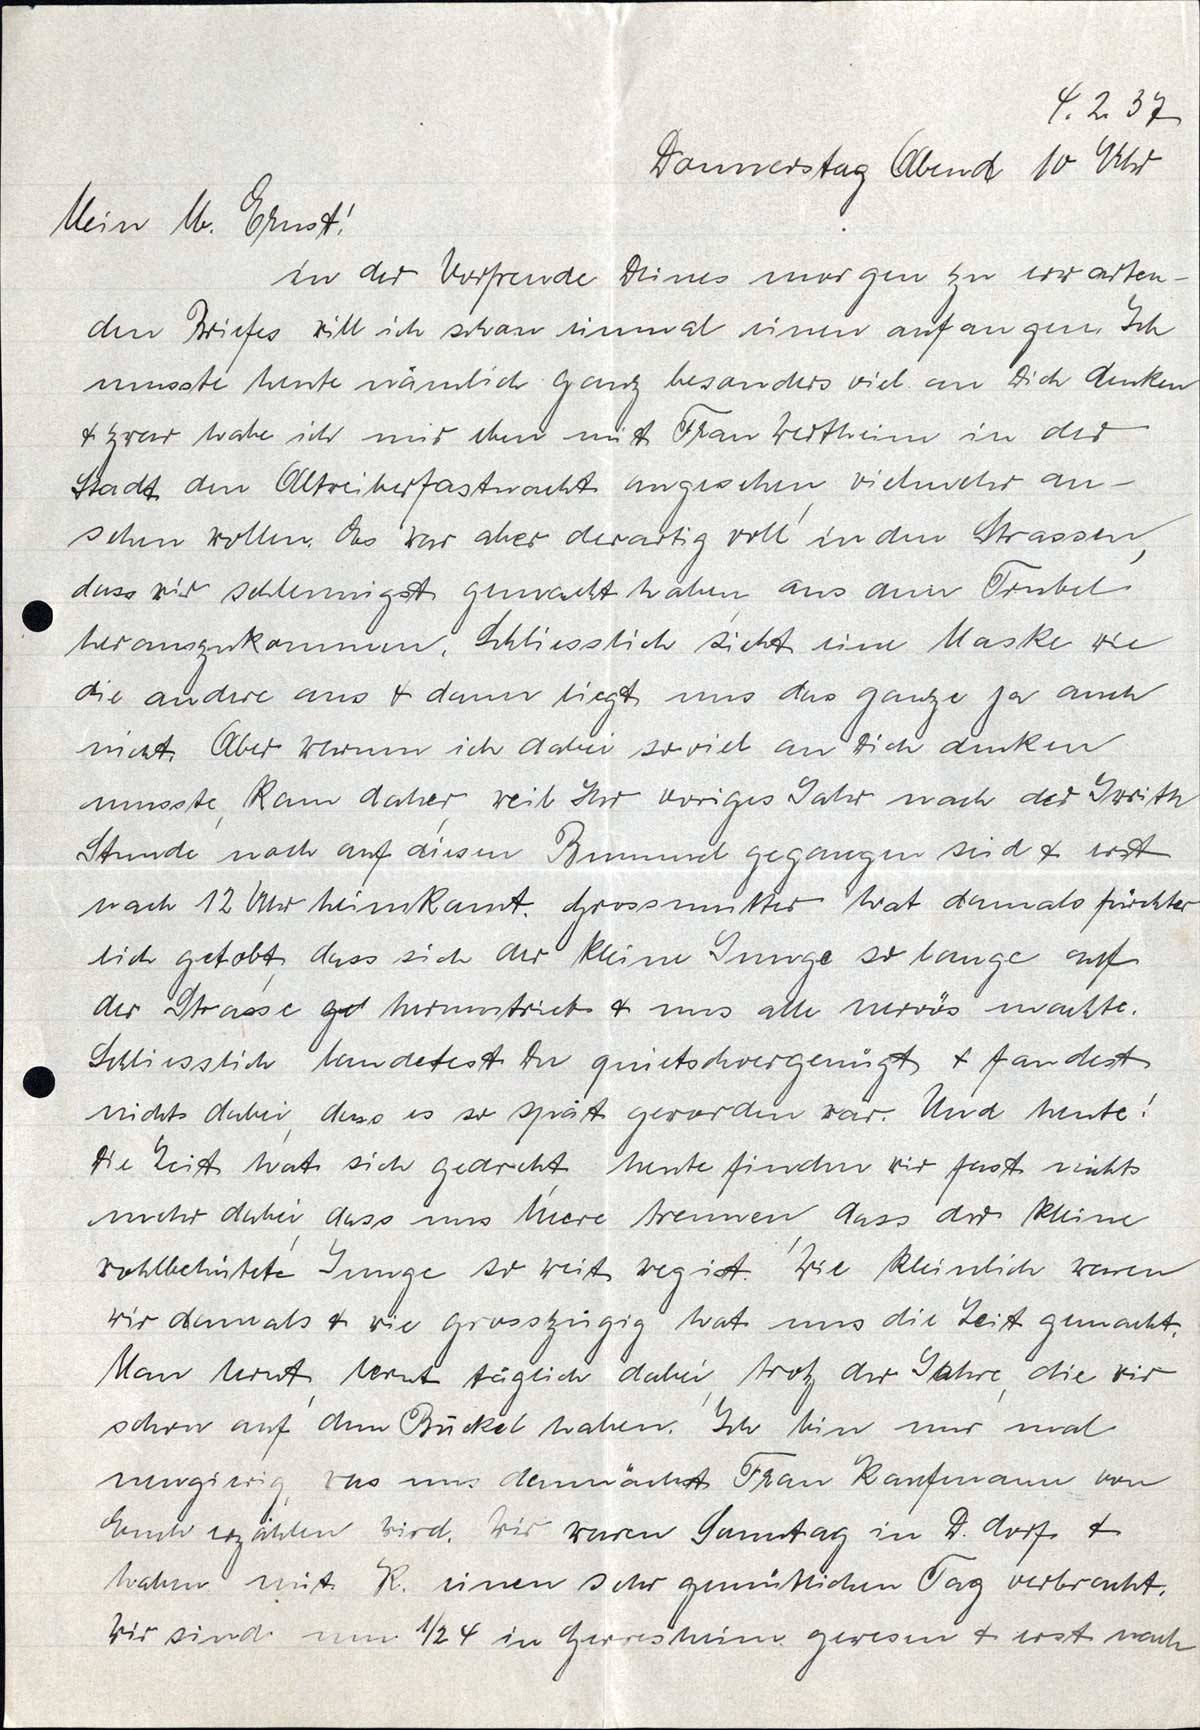 4. 2. 37
Donnerstag Abend 10 Uhr
Mein lb. Ernst!
in der Vorfreude Deines morgen zu erwarten-
den Briefes will ich schon einmal einen anfangen. Ich
musste heute nämlich ganz besonders viel an Dich denken
& zwar habe ich mir eben mit Frau Wertheim in der
Stadt den Altweiberfastnacht angesehen, vielmehr an-
sehen wollen. Es war aber derartig voll in den Strassen,
dass wir schleunigst gemacht haben, aus dem Trubel
herauszukommen. Schliesslich sieht eine Maske wie
die andere aus & dann liegt uns das ganze ja auch
nicht. Aber warum ich dabei soviel an Dich denken
musste, kam daher, weil Ihr voriges Jahr nach der Iwrith
Stunde noch auf diesen Bummel gegangen seid & erst
nach 12 Uhr heimkamt. Grossmutter hat damals fürchter
lich getobt, dass sich der kleine Junge so lange auf
der Strasse herumtrieb & uns alle nervös machte.
Schliesslich landetest Du quietschvergnügt & fandest
nichts dabei, dass es so spät geworden war. Und heute!
Die Zeit hat sich gedreht, heute finden wir fast nichts
mehr dabei, dass uns Meere trennen, dass der kleine
wohlbehütete Junge so weit weg ist. Wie kleinlich waren
wir damals & wie grosszügig hat uns die Zeit gemacht.
Man lernt, lernt täglich dabei, trotz der Jahre, die wir
schon auf dem Buckel haben. Ich bin nur mal
neugierig, was uns demnächst Frau Kaufmann von
Euch erzählen wird. Wir waren Sonntag in D.dorf &
haben mit K. einen sehr gemütlichen Tag verbracht.
Wir sind um 1/2 4 in Gerresheim gewesen & erst nach